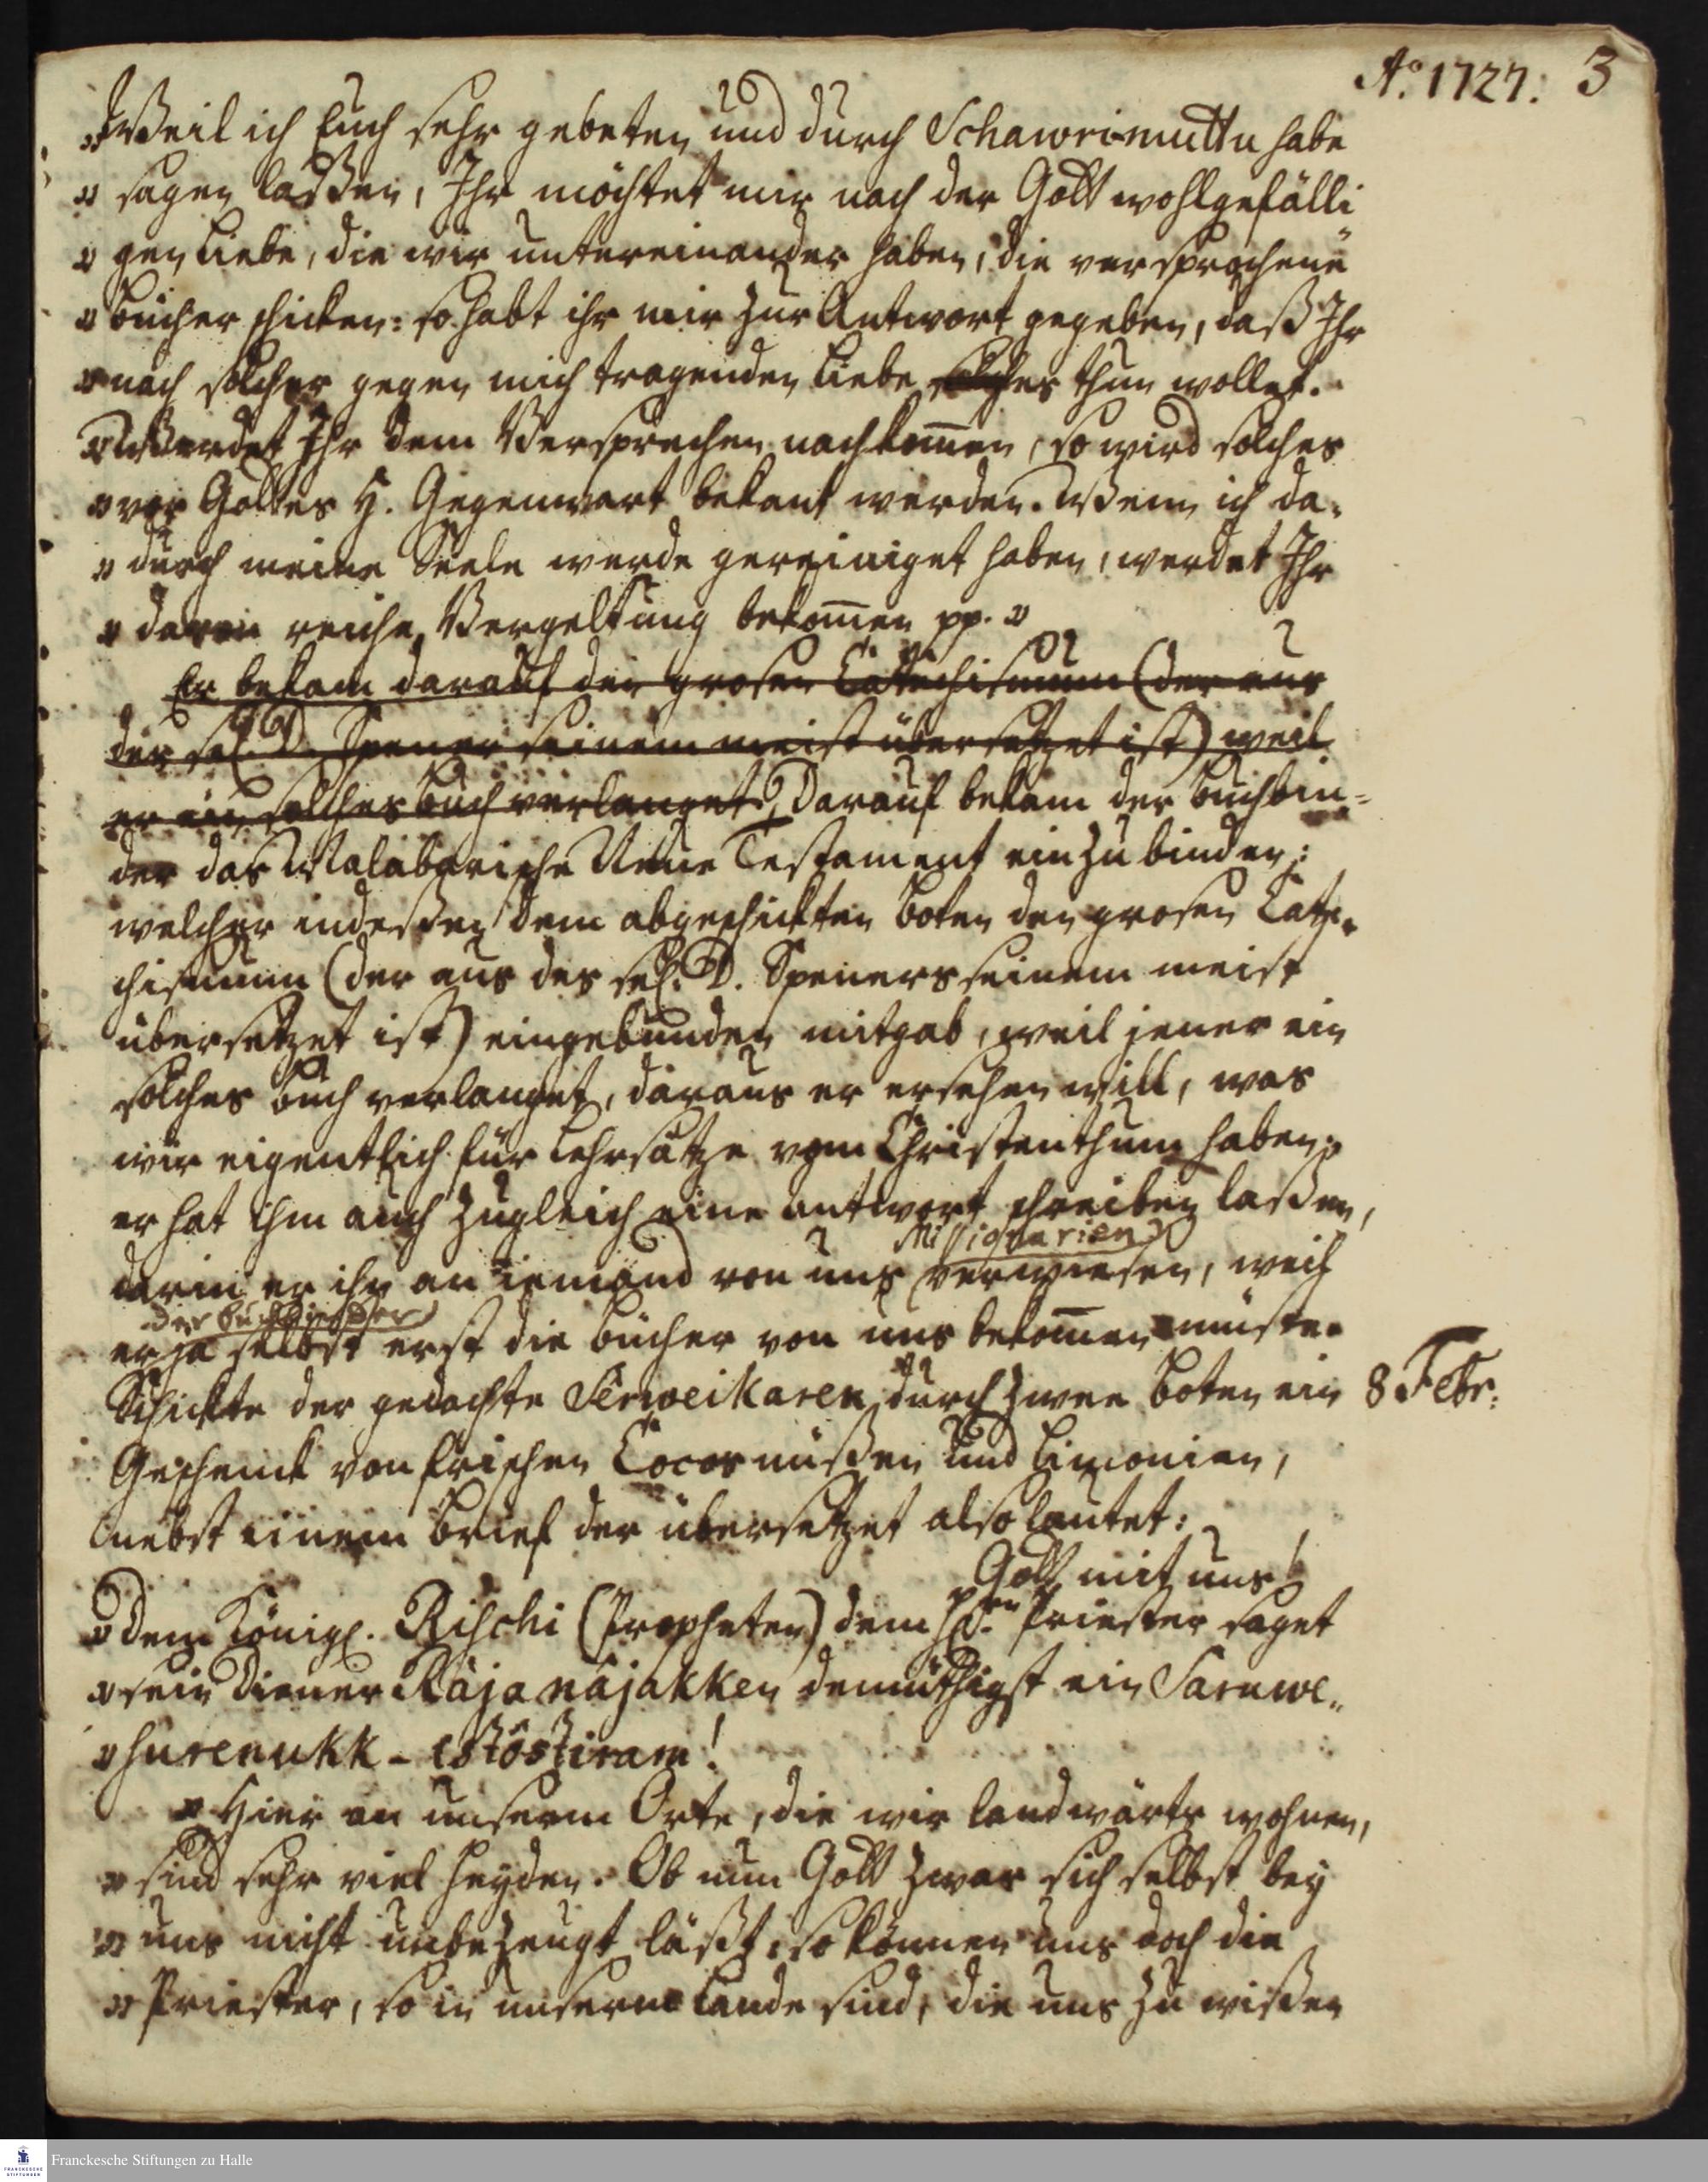 Aō. 1727. 3
„Weil ich Euch sehr gebeten und durch Schawrimuttu habe
„sagen laßen, Ihr möchtet mir nach der Gott wohlgefälli
„gen Liebe, die wir untereinander haben, die versprochene
„Bücher schicken: so habt ihr mir zur Antwort gegeben, daß Ihr
„nach solcher gegen mich tragenden Liebe solches thun wollet.
„Werdet Ihr dem Versprechen nachkom̄en, so wird solches
„vor Gottes H. Gegenwart bekant werden. Wenn ich da-
„durch meine Seele werde gereiniget haben, werdet Ihr
„davon reiche Vergeltung bekom̄en pp.„
Er bekam darauf den grosen Catechismum (der aus
des sel. D. Spener seinem meist übersetzet ist) weil
er ein solches Buch verlanget. Darauf bekam der Buchbin-
der das Malabarische Neue Testament einzubinden;
welcher indeßen dem abgeschickten Boten den grosen Cate-
chismum (der aus des sel. D. Speners seinem meist
übersetzet ist) eingebunden mitgab, weil jener ein
solches Buch verlanget, daraus er ersehen will, was
wir eigentlich für Lehrsätze vom Christenthum haben;
er hat ihm auch zugleich eine antwort schreiben laßen,
Missionarien
darin er ihn an iemand von uns verwiesen, weil
der Buchbinder
er ja selbst erst die Bücher von uns bekom̄en müste.
Schickte der gedachte Serweikaren durch zwen Boten ein 8 Febr.
Geschenck von frischen Cocosnüßen und Limonien,
nebst einem Brief der übersetzet also lautet:
Gott mit uns!
„Dem Königl. Rischi (Propheten) dem Hrn. Priester saget
„sein Diener Rájanájakken demüthigst ein Saruwe„
„surenukk-istóstiram!
„Hier an unserm Orte, die wir landwärts wohnen,
„sind sehr viel Heyden. Ob nun Gott zwar sich selbst bey
„uns nicht unbezeugt läßt, so können uns doch die
„Priester, so in unserm Lande sind, die uns zu wißen
Franckesche Stiftungen zu Halle
FRANCKESCHE
STIFTUNGEN